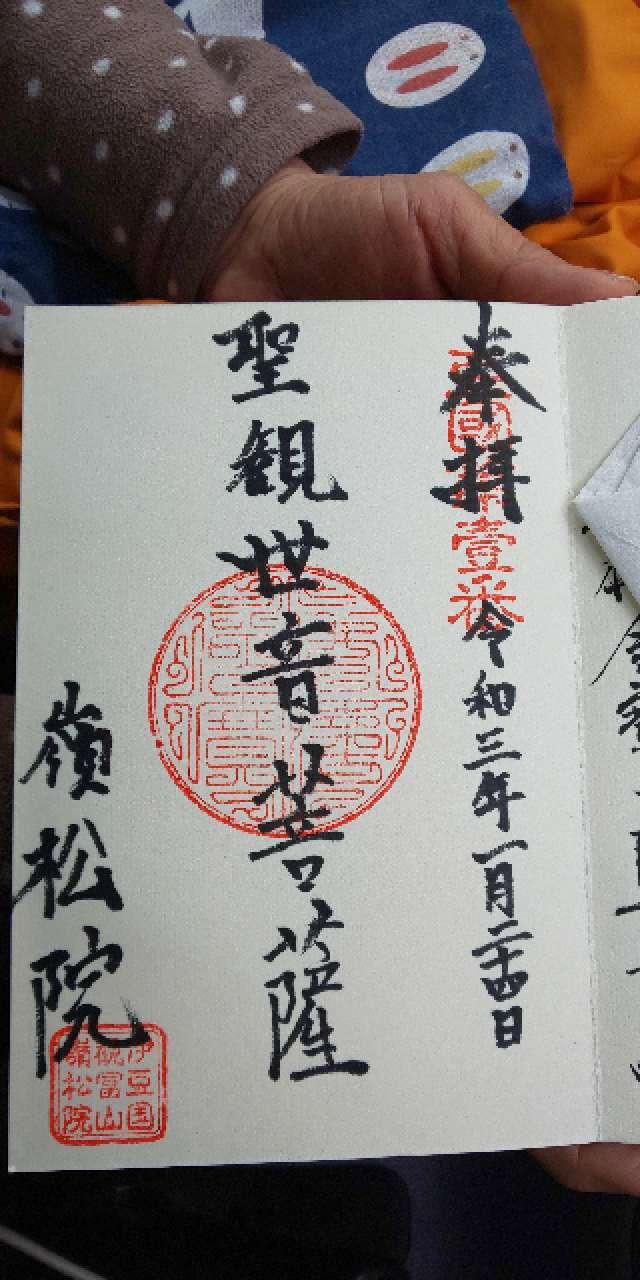 奉拝
壹番
令和三年一月二十四日
聖観世音菩薩
嶺松院
伊豆国
富山
嶺松院